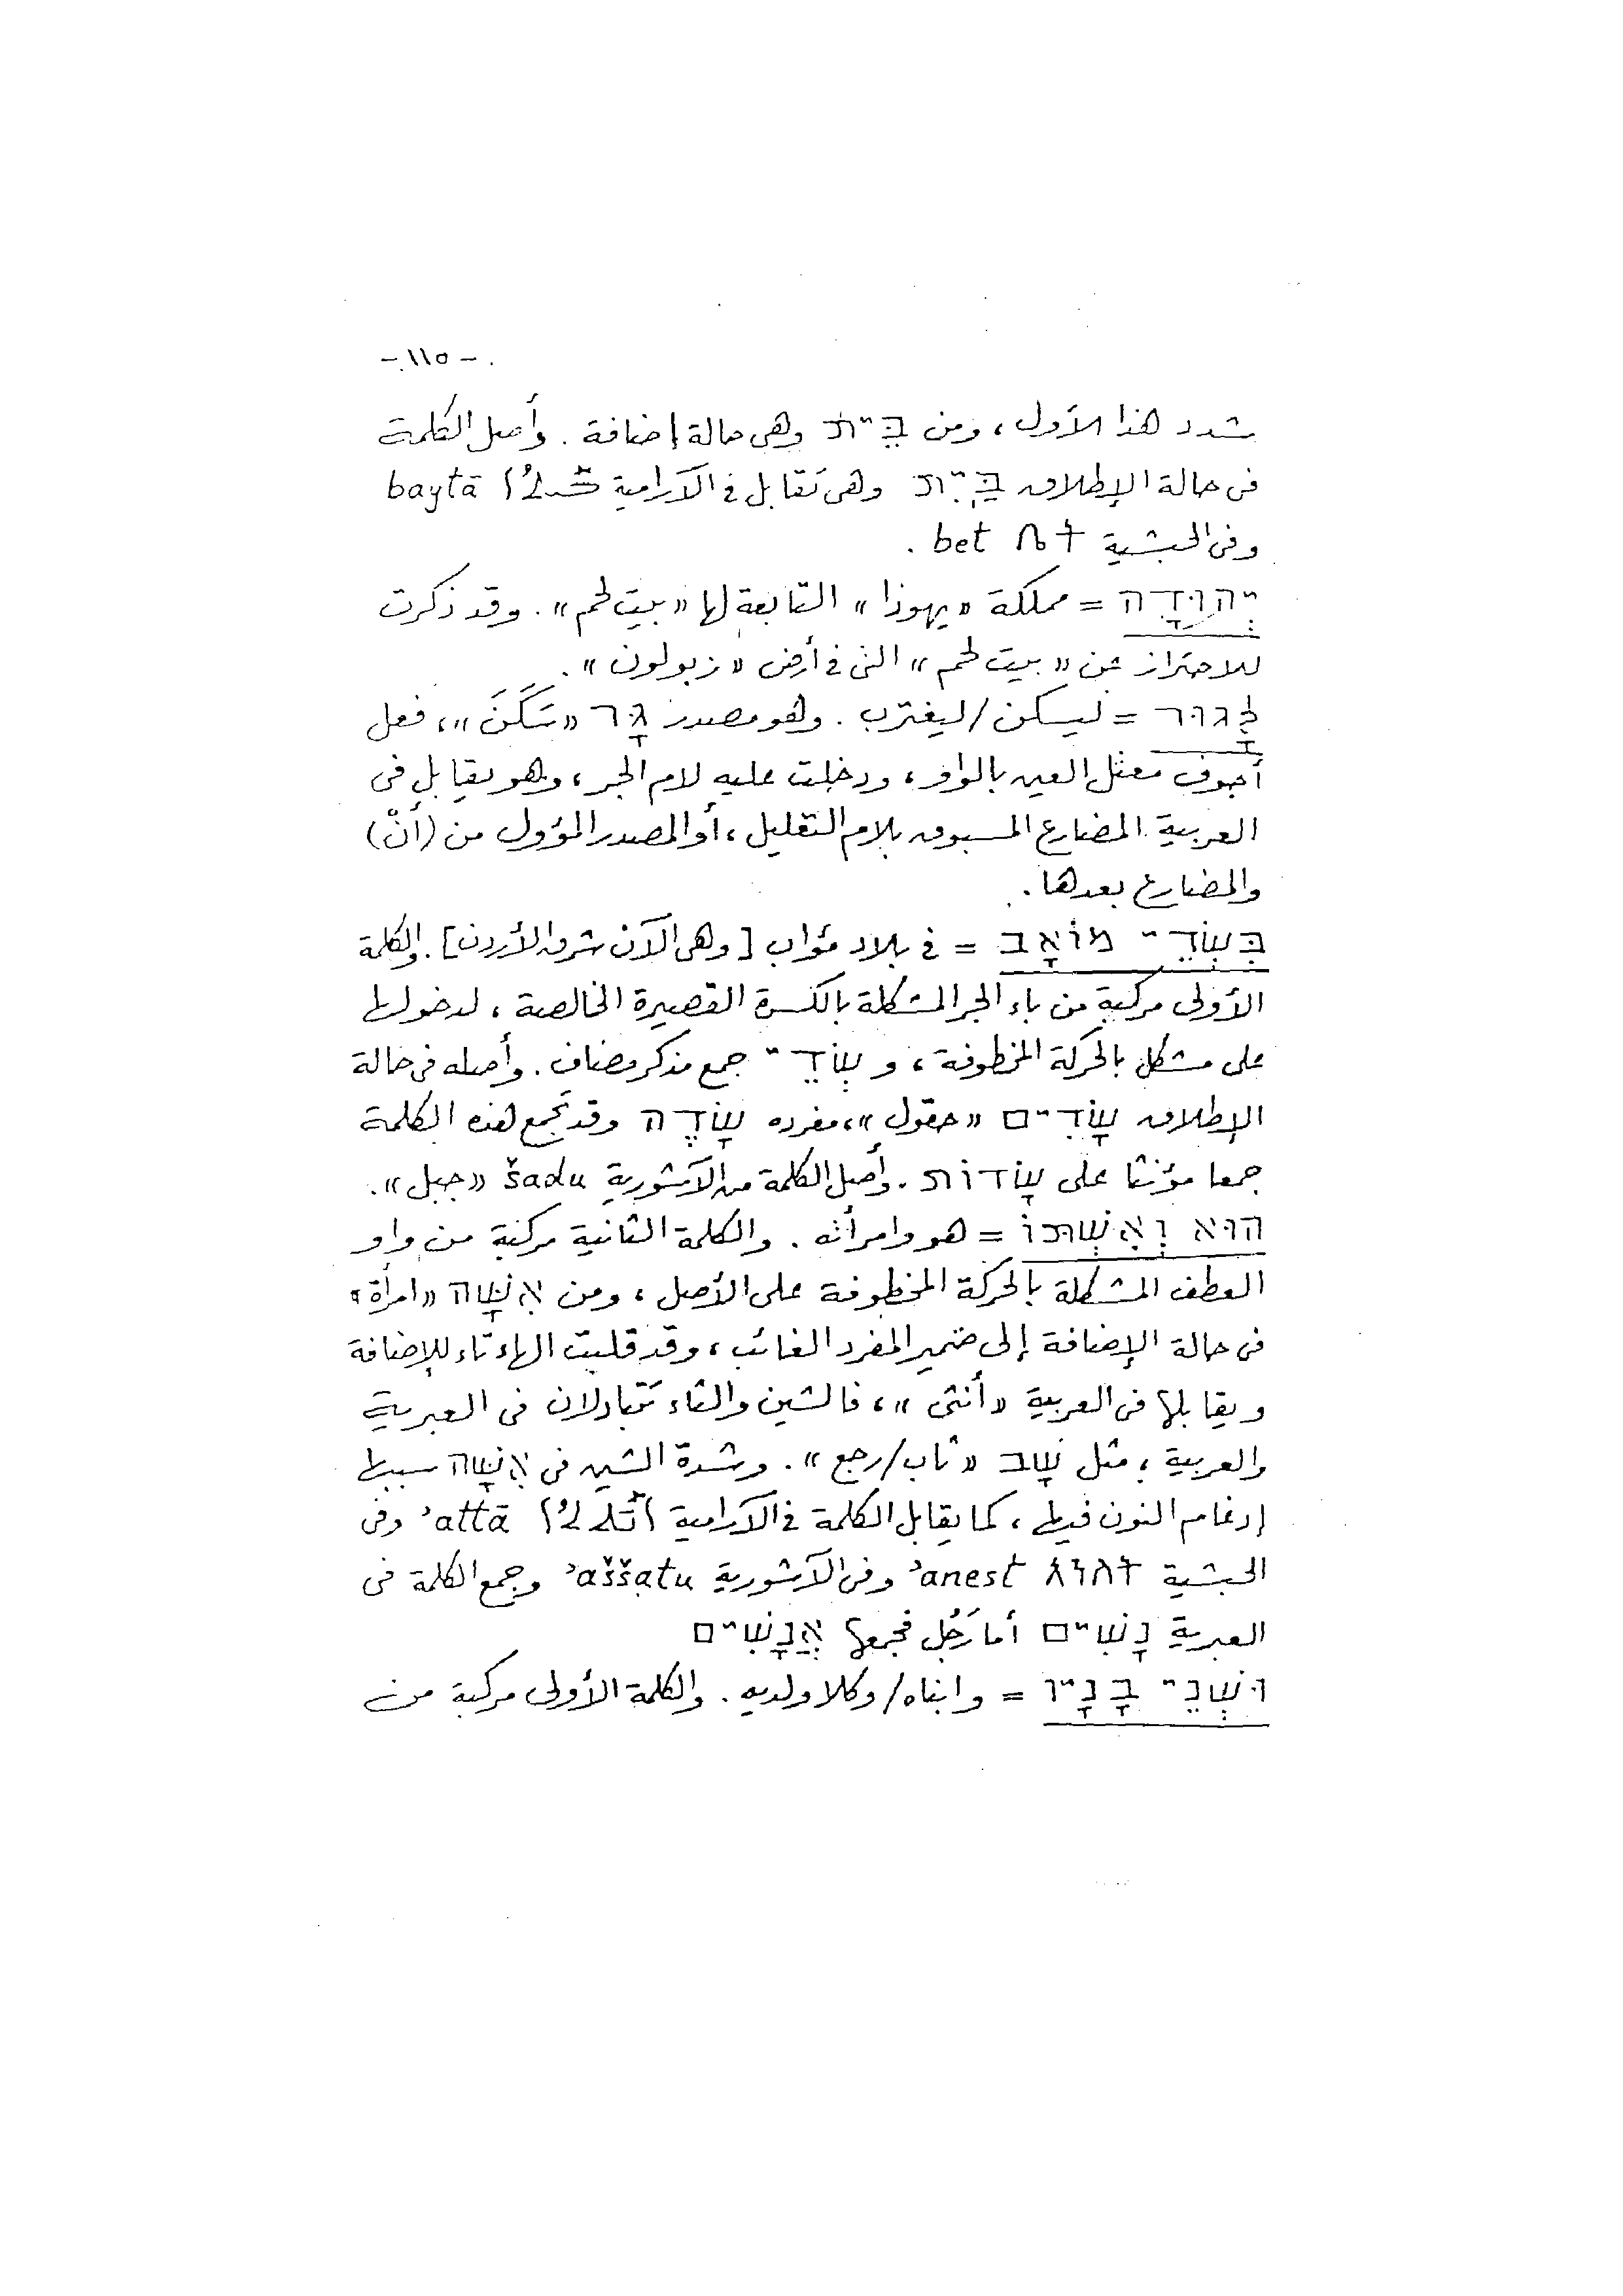 - ١١٥ -
شدد هذا الأول، ومن בֵּית وهى حالة إضافة. وأصل الكلمة
فى حالة الإطلاق בַּיִת وهى تَقابل فى الآرامية ܒܰܝܬܳܐ baytā
وفى الحبشية ቤት bet .
יְהוּדָה = مملكة «يهوذا» التابعة لها «بيت لحم». وقد ذكرت
للاحتراز عن «بيت لحم» التى فى أرض «زبولون».
לָגוּר = ليسكن/ليغترب. وهو مصدر גָּר «سَكَنَ»، فعل
أجوف معتل العين بالواو، ودخلت عليه لام الجر، وهو يقابل فى
العربية المضارع المسبوق بلام التعليل، أو المصدر المؤول من (أنْ)
والمضارع بعدها.
בִּשְׂדֵי מוֹאָב = فى بلاد مؤاب [وهى الآن شرق الأردن]. والكلمة
الأولى مركبة من باء الجر المشكلة بالكسرة القصيرة الخالصة، لدخولها
على مشكل بالحركة المخطوفة، و שְׂדֵי جمع مذكر مضاف. وأصله فى حالة
الإطلاق שָׂדִים «حقول»، مفرده שָׂדֶה وقد تجمع هذه الكلمة
جمعا مؤنثا على שָׂדוֹת . وأصل الكلمة من الآشورية šadu «جبل».
הוּא וְאִשְׁתּוֹ = هو وامرأته . والكلمة الثانية مركبة من واو
العطف المشكلة بالحركة المخطوفة على الأصل، ومن אִשָּׁה «امرأة»
فى حالة الإضافة إلى ضمير المفرد الغائب، وقد قلبت الهاء تاء للإضافة
ويقابلها فى العربية «أنثى»، فالشين والثاء تتبادلان فى العبرية
والعربية، مثل שָׁב «ثاب/رجع». وشدة الشين فى אִשָּׁה سببها
إدغام النون فيها، كما يقابل الكلمة فى الآرامية ܐܰܢ̱ܬܬܳܐ ʾattā وفى
الحبشية አንስት ʾanest وفى الآشورية ʾaššatu وجمع الكلمة فى
العبرية נָשִׁים أما رَجُل فجمعها אֲנָשִׁים
וּשְׁנֵי בָנָיו = وابناه/وكلا ولديه. والكلمة الأولى مركبة من